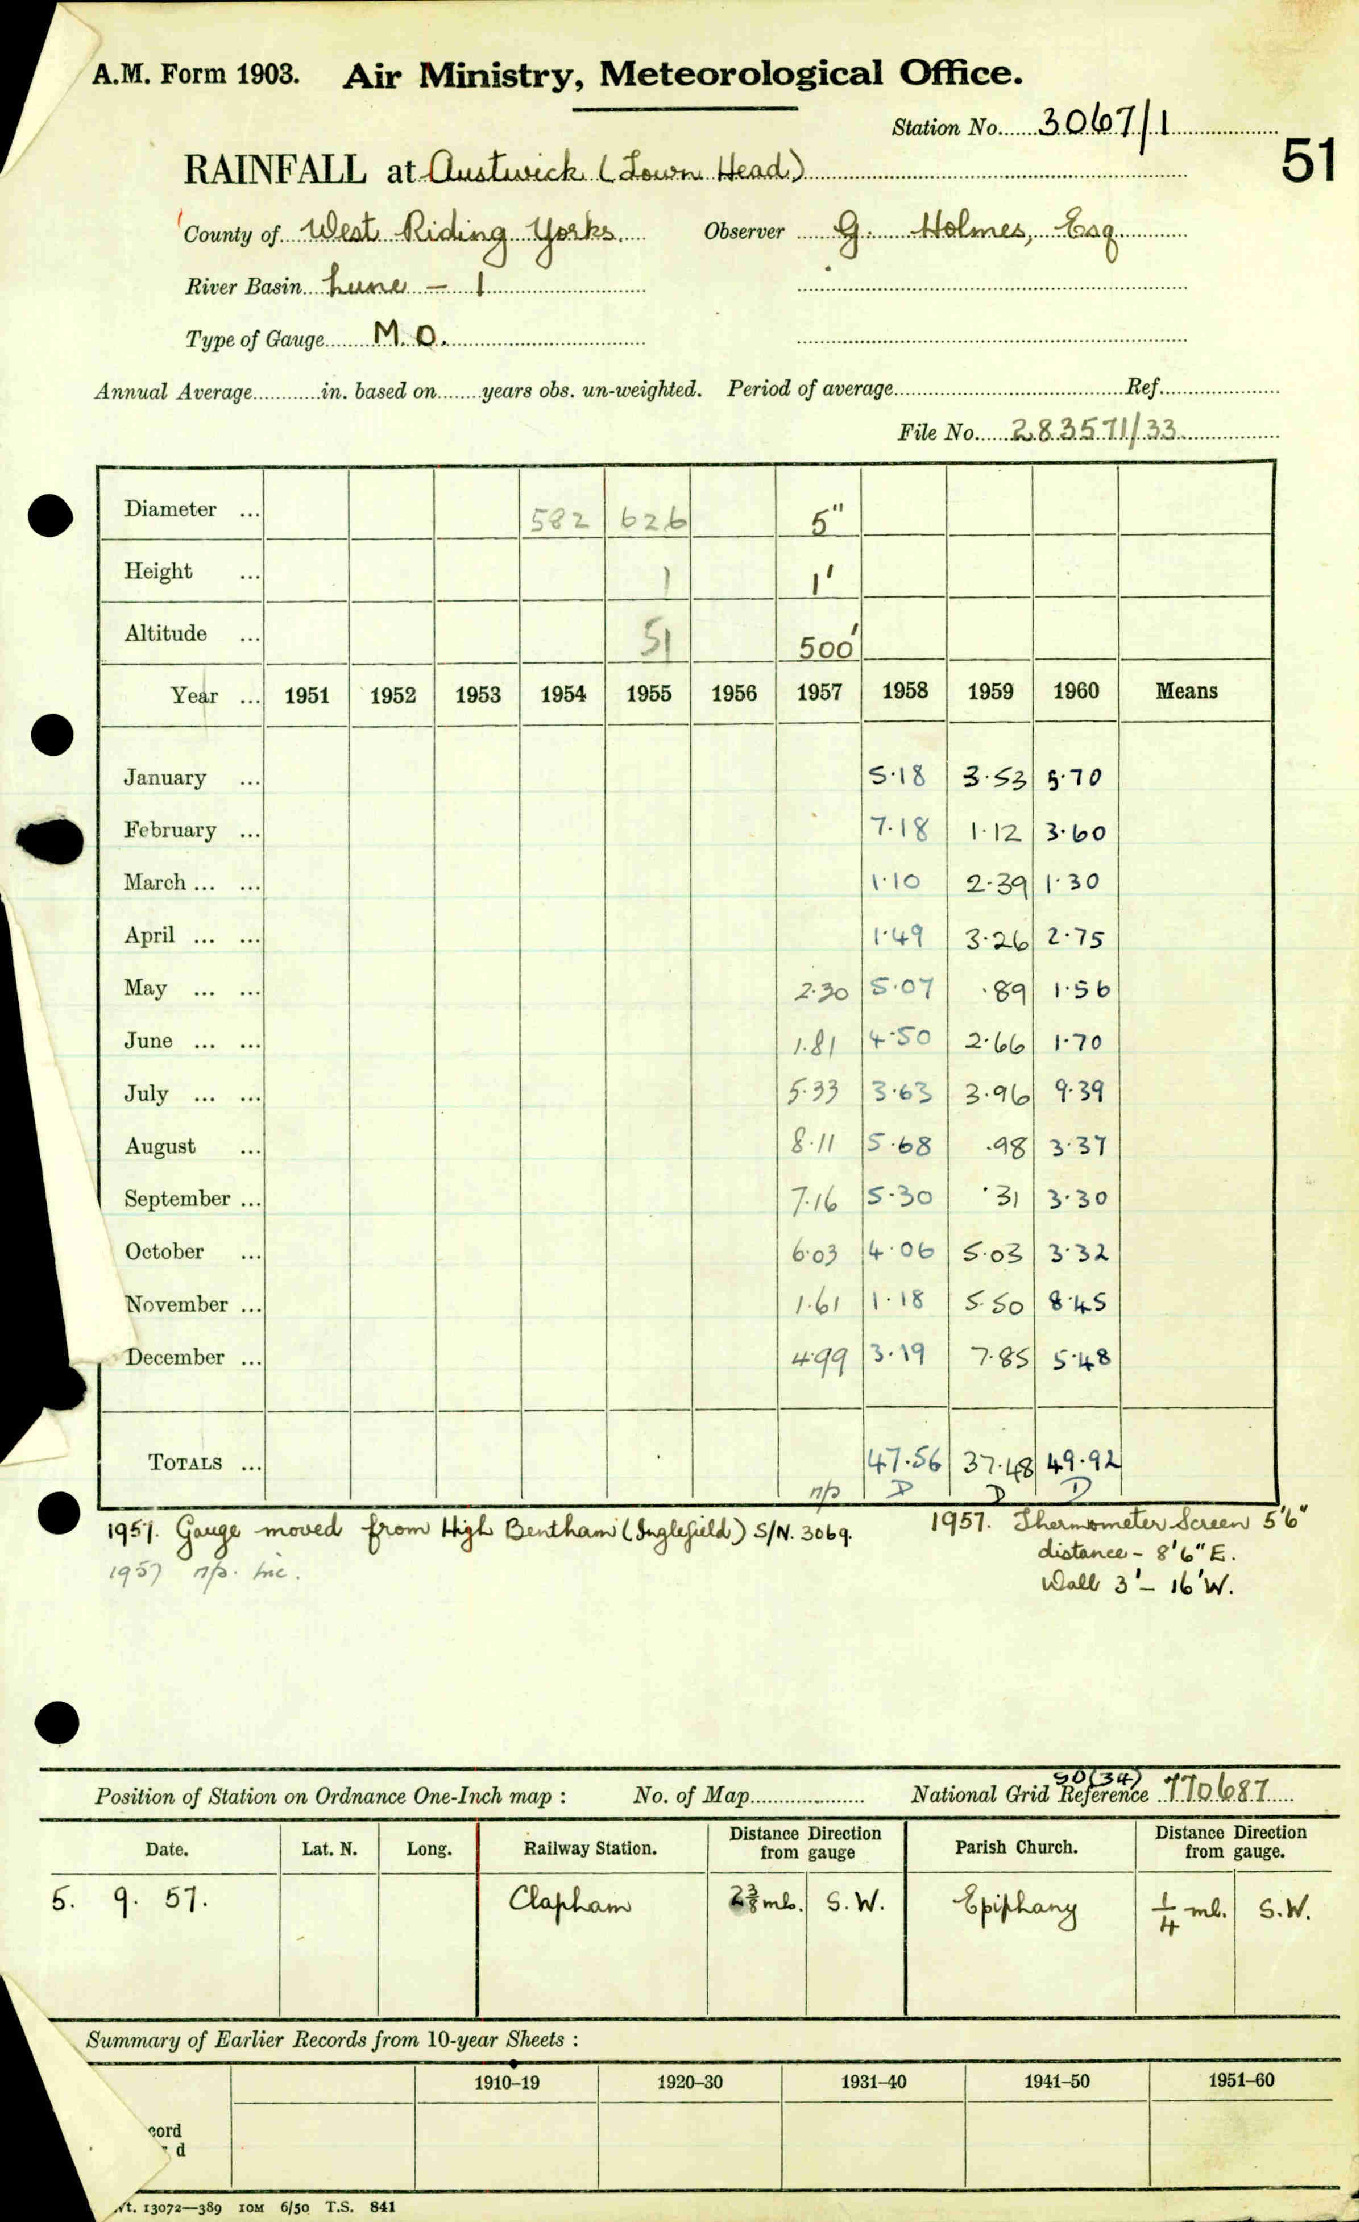 A.M. Form 1903. Air Ministry, Meteorological Office.
Station No. 3067/1
51
RAINFALL at Austwick (Town Head)
County of West Riding Yorks. Observer G. Holmes, Esq
River Basin Lune - 1
Type of Gauge M.O.
Annual Average in. based on years obs. un-weighted. Period of average Ref.
File No. 283571/33
Diameter ... 582 626 5"
Height ... 1 1'
Altitude ... 51 500'
Year ... 1951 1952 1953 1954 1955 1956 1957 1958 1959 1960 Means
January ... 5.18 3.53 5.70
February ... 7.18 1.12 3.60
March ... ... 1.10 2.39 1.30
April ... ... 1.49 3.26 2.75
May ... ... 2.30 5.07 .89 1.56
June ... ... 1.81 4.50 2.66 1.70
July ... ... 5.33 3.63 3.96 9.39
August ... 8.11 5.68 .98 3.37
September ... 7.16 5.30 .31 3.30
October ... 6.03 4.06 5.03 3.32
November ... 1.61 1.18 5.50 8.45
December ... 4.99 3.19 7.85 5.48
TOTALS ... 47.56 37.48 49.92
n/p D D D
1957. Gauge moved from High Bentham (Inglefield) S/N. 3069.
1957 n/p. inc.
1957. Thermometer Screen 5'6"
distance - 8'6" E.
Wall 3' - 16' W.
Position of Station on Ordnance One-Inch map : No. of Map National Grid Reference SD(34) 770687
Date. Lat. N. Long. Railway Station. Distance Direction from gauge Parish Church. Distance Direction from gauge.
5. 9. 57. Clapham 2 3/8 mls. S.W. Epiphany 1/4 ml. S.W.
Summary of Earlier Records from 10-year Sheets :
1910–19 1920–30 1931–40 1941–50 1951–60
cord
d
Wt. 13072—389 10M 6/50 T.S. 841